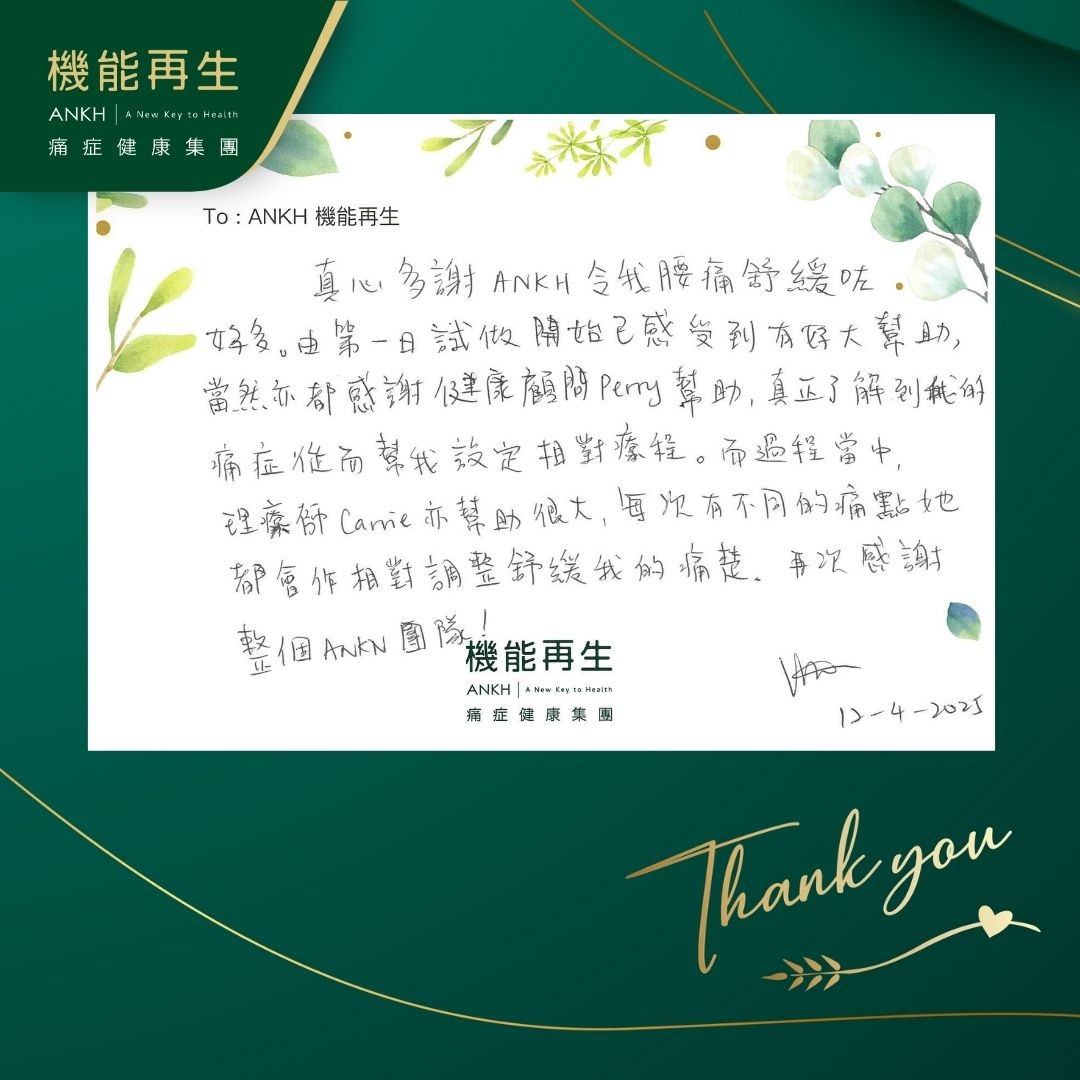 機能再生
ANKH | A New Key to Health
痛症健康集團
To : ANKH 機能再生
真心多謝 ANKH 令我腰痛舒緩咗
好多。由第一日試做開始已感受到有好大幫助,
當然亦都感謝健康顧問Perry幫助,真正了解到我的
痛症從而幫我設定相對療程。而過程當中,
理療師 Carrie 亦幫助很大,每次有不同的痛點她
都會作相對調整舒緩我的痛楚。再次感謝
整個 ANKN 團隊!
機能再生
ANKH | A New Key to Health
痛症健康集團
12-4-2025
Thank you